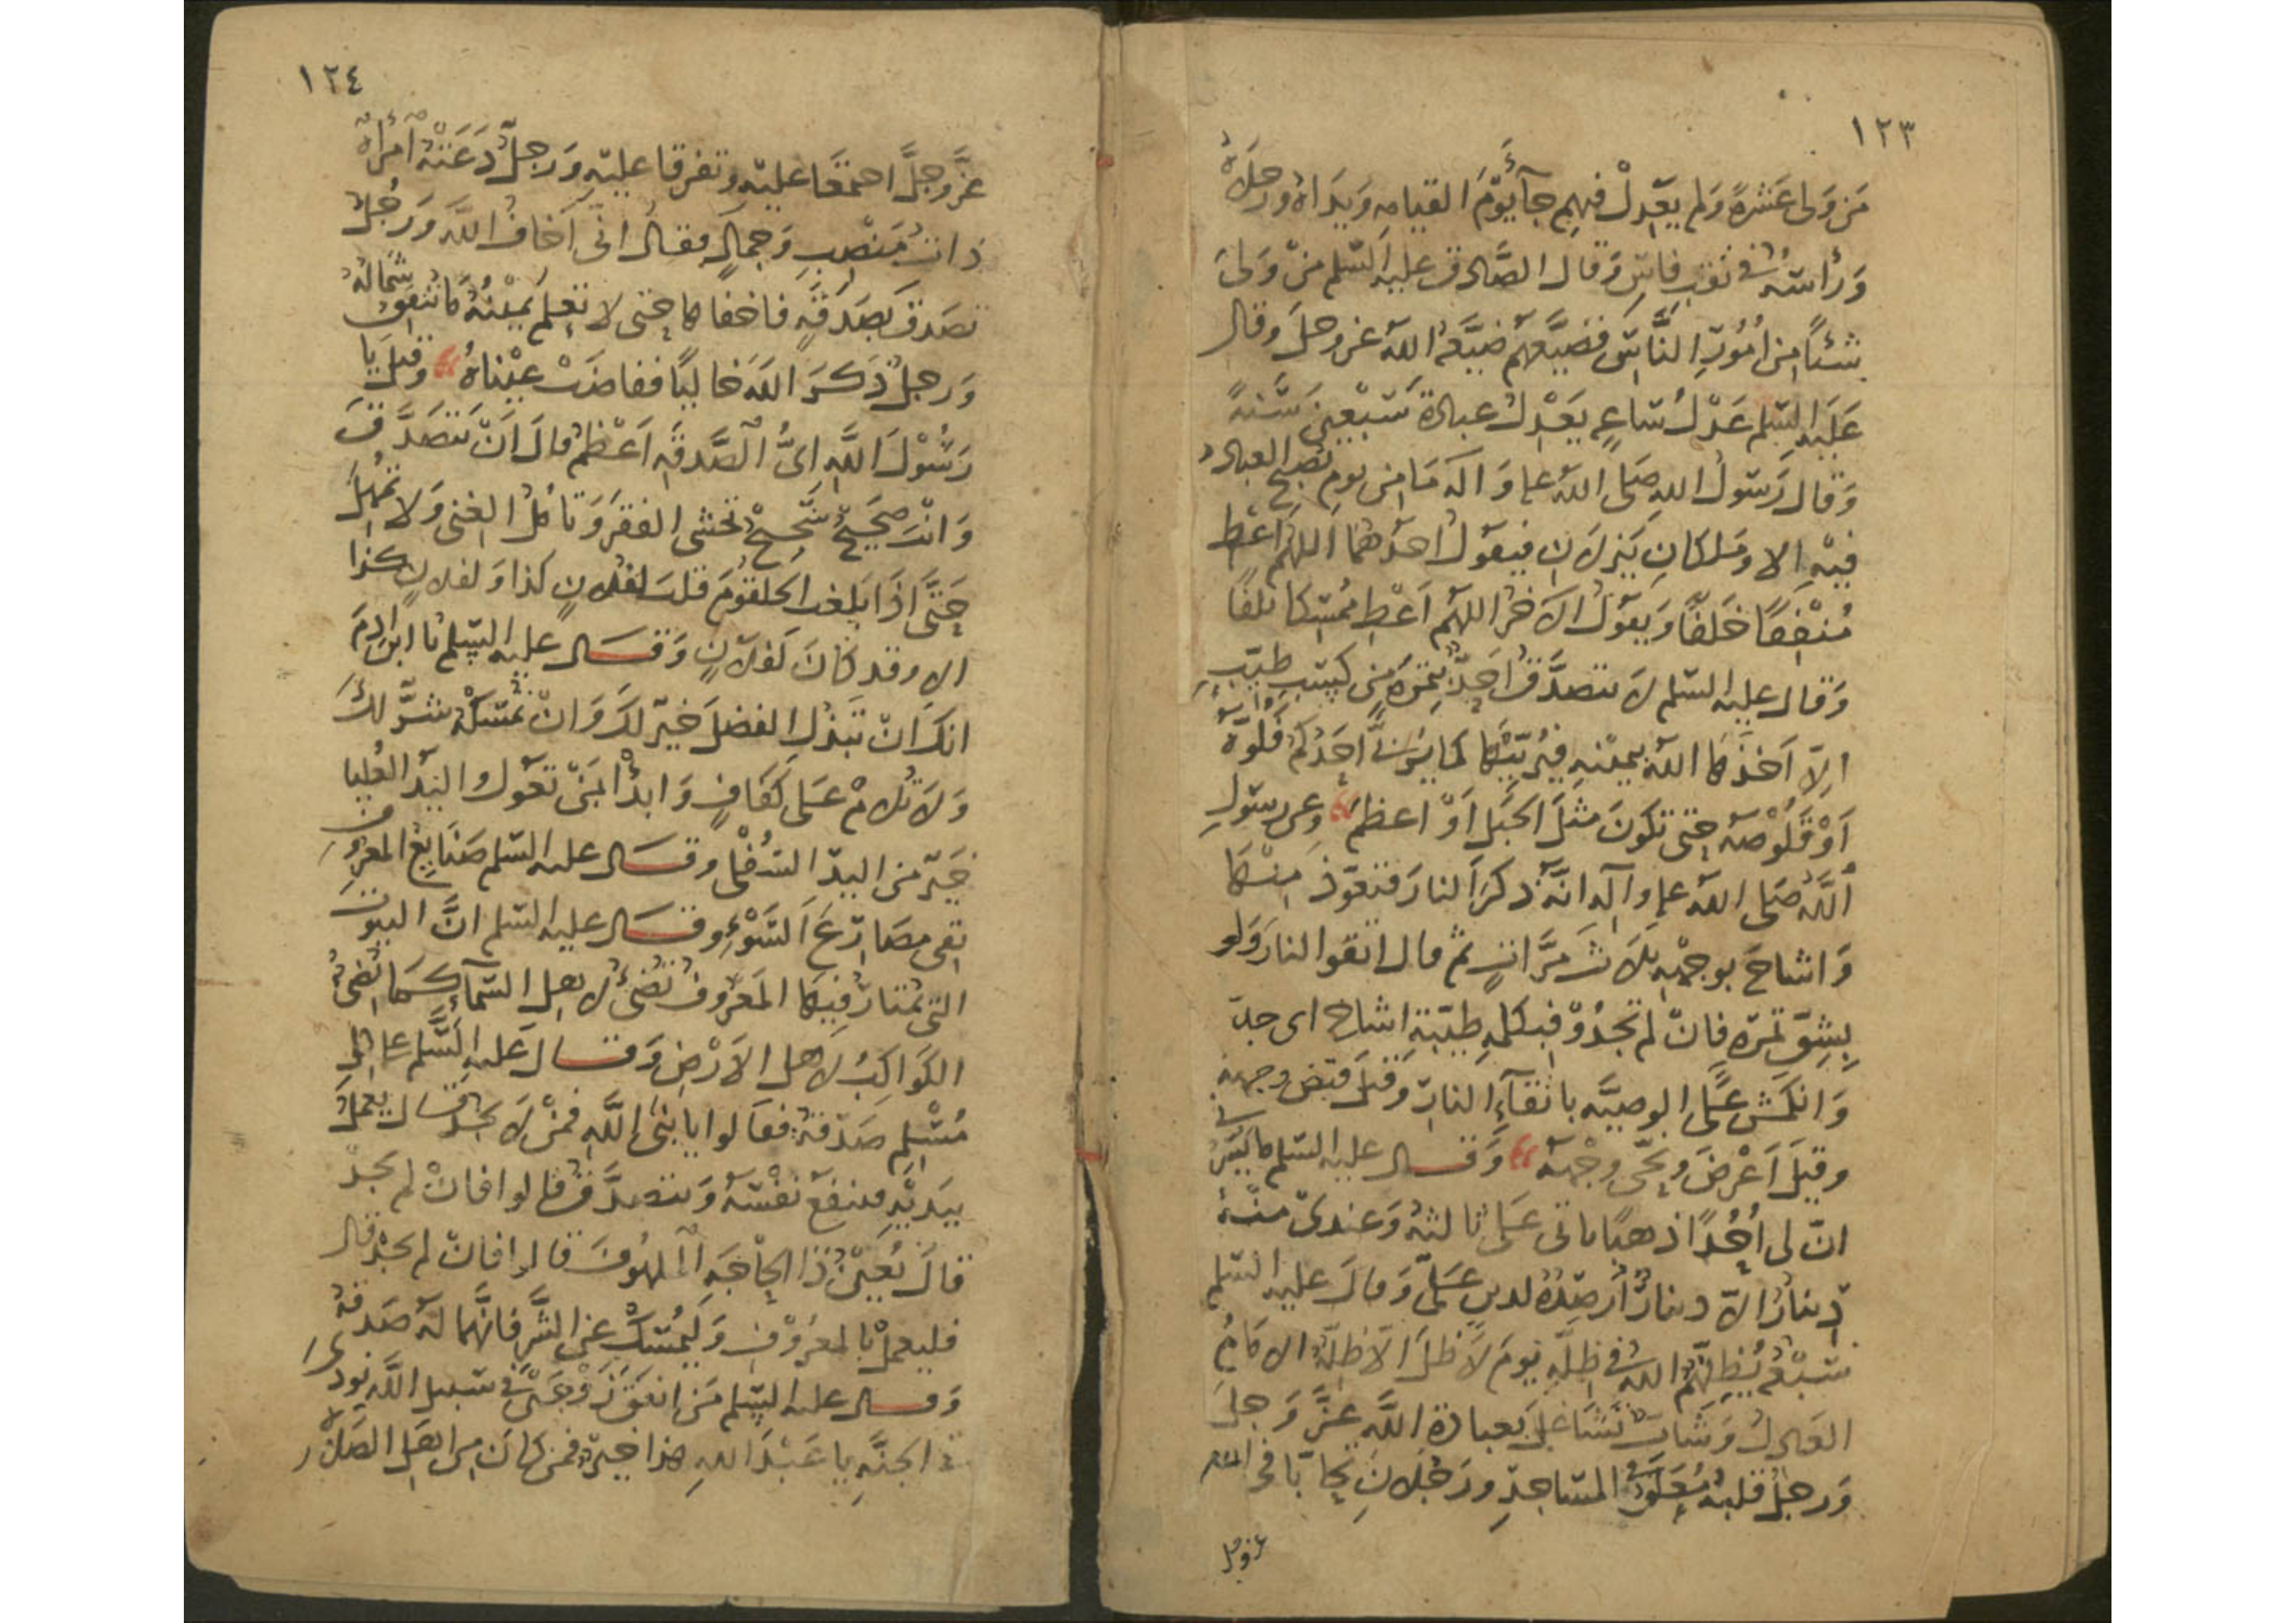 ١٢٣
من ولى عشرة ولم يعدل فيهم جآ يوم القيامه ويداه ورجلاه
ورأسه في ثقب فاس وقال الصادق عليه السلم من ولى
شئا من امور الناس فضيعهم ضيعه الله عز وجل وقال
عليه السلم عدل ساعه يعدل عبادة سبعين سنة
وقال رسول الله صلى الله علم واله ما من يوم يصبح العباد
فيه الا وملكان ينزلان فيقول احدهما اللهم اعط
منفقا خلفا ويقول الاخر اللهم اعط ممسكا تلفا
وقال عليه السلم لا يتصدق احد بتمرة من كسب طيب
الا اخذها الله بيمينه فيربيها كما يربى احدكم فلوه
او قلوصه حتى تكون مثل الجبل او اعظم وعن رسول
الله صلى الله علم وآله انه ذكر النار فتعوذ منها
واشاح بوجهه ثلاث مرات ثم قال اتقوا النار ولو
بشق تمرة فان لم تجدوا فبكلمه طيبة اشاح اى جد
وانكمش على الوصيه باتقآء النار وقيل قبض وجهه
وقيل اعرض ونحى وجهه وقال عليه السلم ما يسرنى
ان لى احدا ذهبا ياتى على ثالثه وعندى منه
دينار الا دينار ارصده لدين على وقال عليه السلم
سبعة يظلهم الله في ظله يوم لا ظل الا ظله الامام
العادل وشاب نشا على بعبادة الله عز وجل
ورجل قلبه معلق في المساجد ورجلان تحابا في الله
عز وجل
١٢٤
عز وجل اجتمعا عليه وتفرقا عليه ورجل دعته امراة
ذات منصب وجمال فقال انى اخاف الله ورجل
تصدق بصدقه فاخفاها حتى لا تعلم يمينه ما تنفق شماله
ورجل ذكر الله خاليا ففاضت عيناه وقيل يا
رسول الله اى الصدقه اعظم قال ان تتصدق
وانت صحيح شحيح تخشى الفقر وتامل الغنى ولا تمهل
حتى اذا بلغت الحلقوم قلت لفلان كذا ولفلان كذا
الا وقد كان لفلان وقال عليه السلم يا ابن ادم
انك ان تبذل الفضل خير لك وان تمسكه شر لك
ولا تلام على كفاف وابدأ بمن تعول واليد العليا
خير من اليد السفلى وقال عليه السلم صنايع المعروف
تقى مصارع السوء وقال عليه السلم ان البيوت
التى يمتار فيها المعروف تضئ لاهل السمآء كما تضئ
الكواكب لاهل الارض وقال عليه السلم على كل
مسلم صدقة فقالوا يا نبى الله فمن لا يجد قال يعمل
بيديه فينفع نفسه ويتصدق قالوا فان لم يجد
قال يعين ذا الحاجه الملهوف قالوا فان لم يجد قال
فليعمل بالمعروف وليمسك عن الشر فانها له صدقة
وقال عليه السلم من انفق زوجين في سبيل الله نودى
في الجنه يا عبد الله هذا خير فمن كان من اهل الصلاة